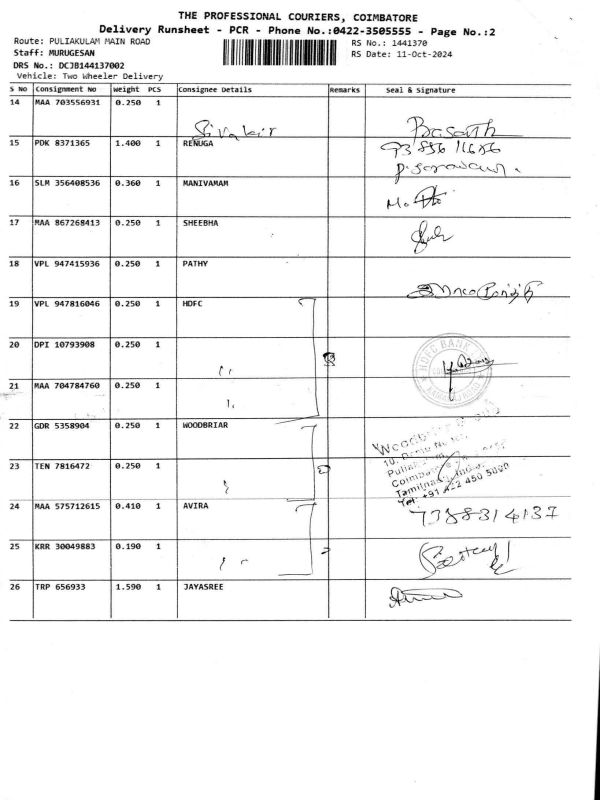 THE PROFESSIONAL COURIERS, COIMBATORE
Delivery Runsheet - PCR - Phone No.:0422-3505555 - Page No.:2
Route: PULIAKULAM MAIN ROAD
RS No.: 1441370
Staff: MURUGESAN
RS Date: 11-Oct-2024
DRS No.: DCJB144137002
Vehicle: Two Wheeler Delivery
S No Consignment No Weight PCS Consignee Details Remarks Seal & Signature
14 MAA 703556931 0.250 1
15 PDK 8371365 1.400 1 RENUGA
16 SLM 356408536 0.360 1 MANIVAMAM
17 MAA 867268413 0.250 1 SHEEBHA
18 VPL 947415936 0.250 1 PATHY
19 VPL 947816046 0.250 1 HDFC
20 DPI 10793908 0.250 1
HDFC BANK
21 MAA 704784760 0.250 1
22 GDR 5358904 0.250 1 WOODBRIAR
23 TEN 7816472 0.250 1
Tel: +91 422 450 5000
24 MAA 575712615 0.410 1 AVIRA
7388314137
25 KRR 30049883 0.190 1
26 TRP 656933 1.590 1 JAYASREE